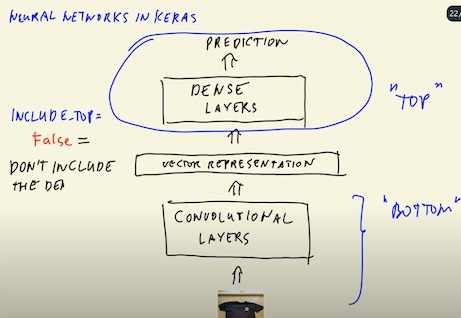 NEURAL NETWORKS IN KERAS
22/
PREDICTION
DENSE
LAYERS
"TOP"
INCLUDE_TOP =
False =
DON'T INCLUDE
THE DEA
VECTOR REPRESENTATION
CONVOLUTIONAL
LAYERS
"BOTTOM"